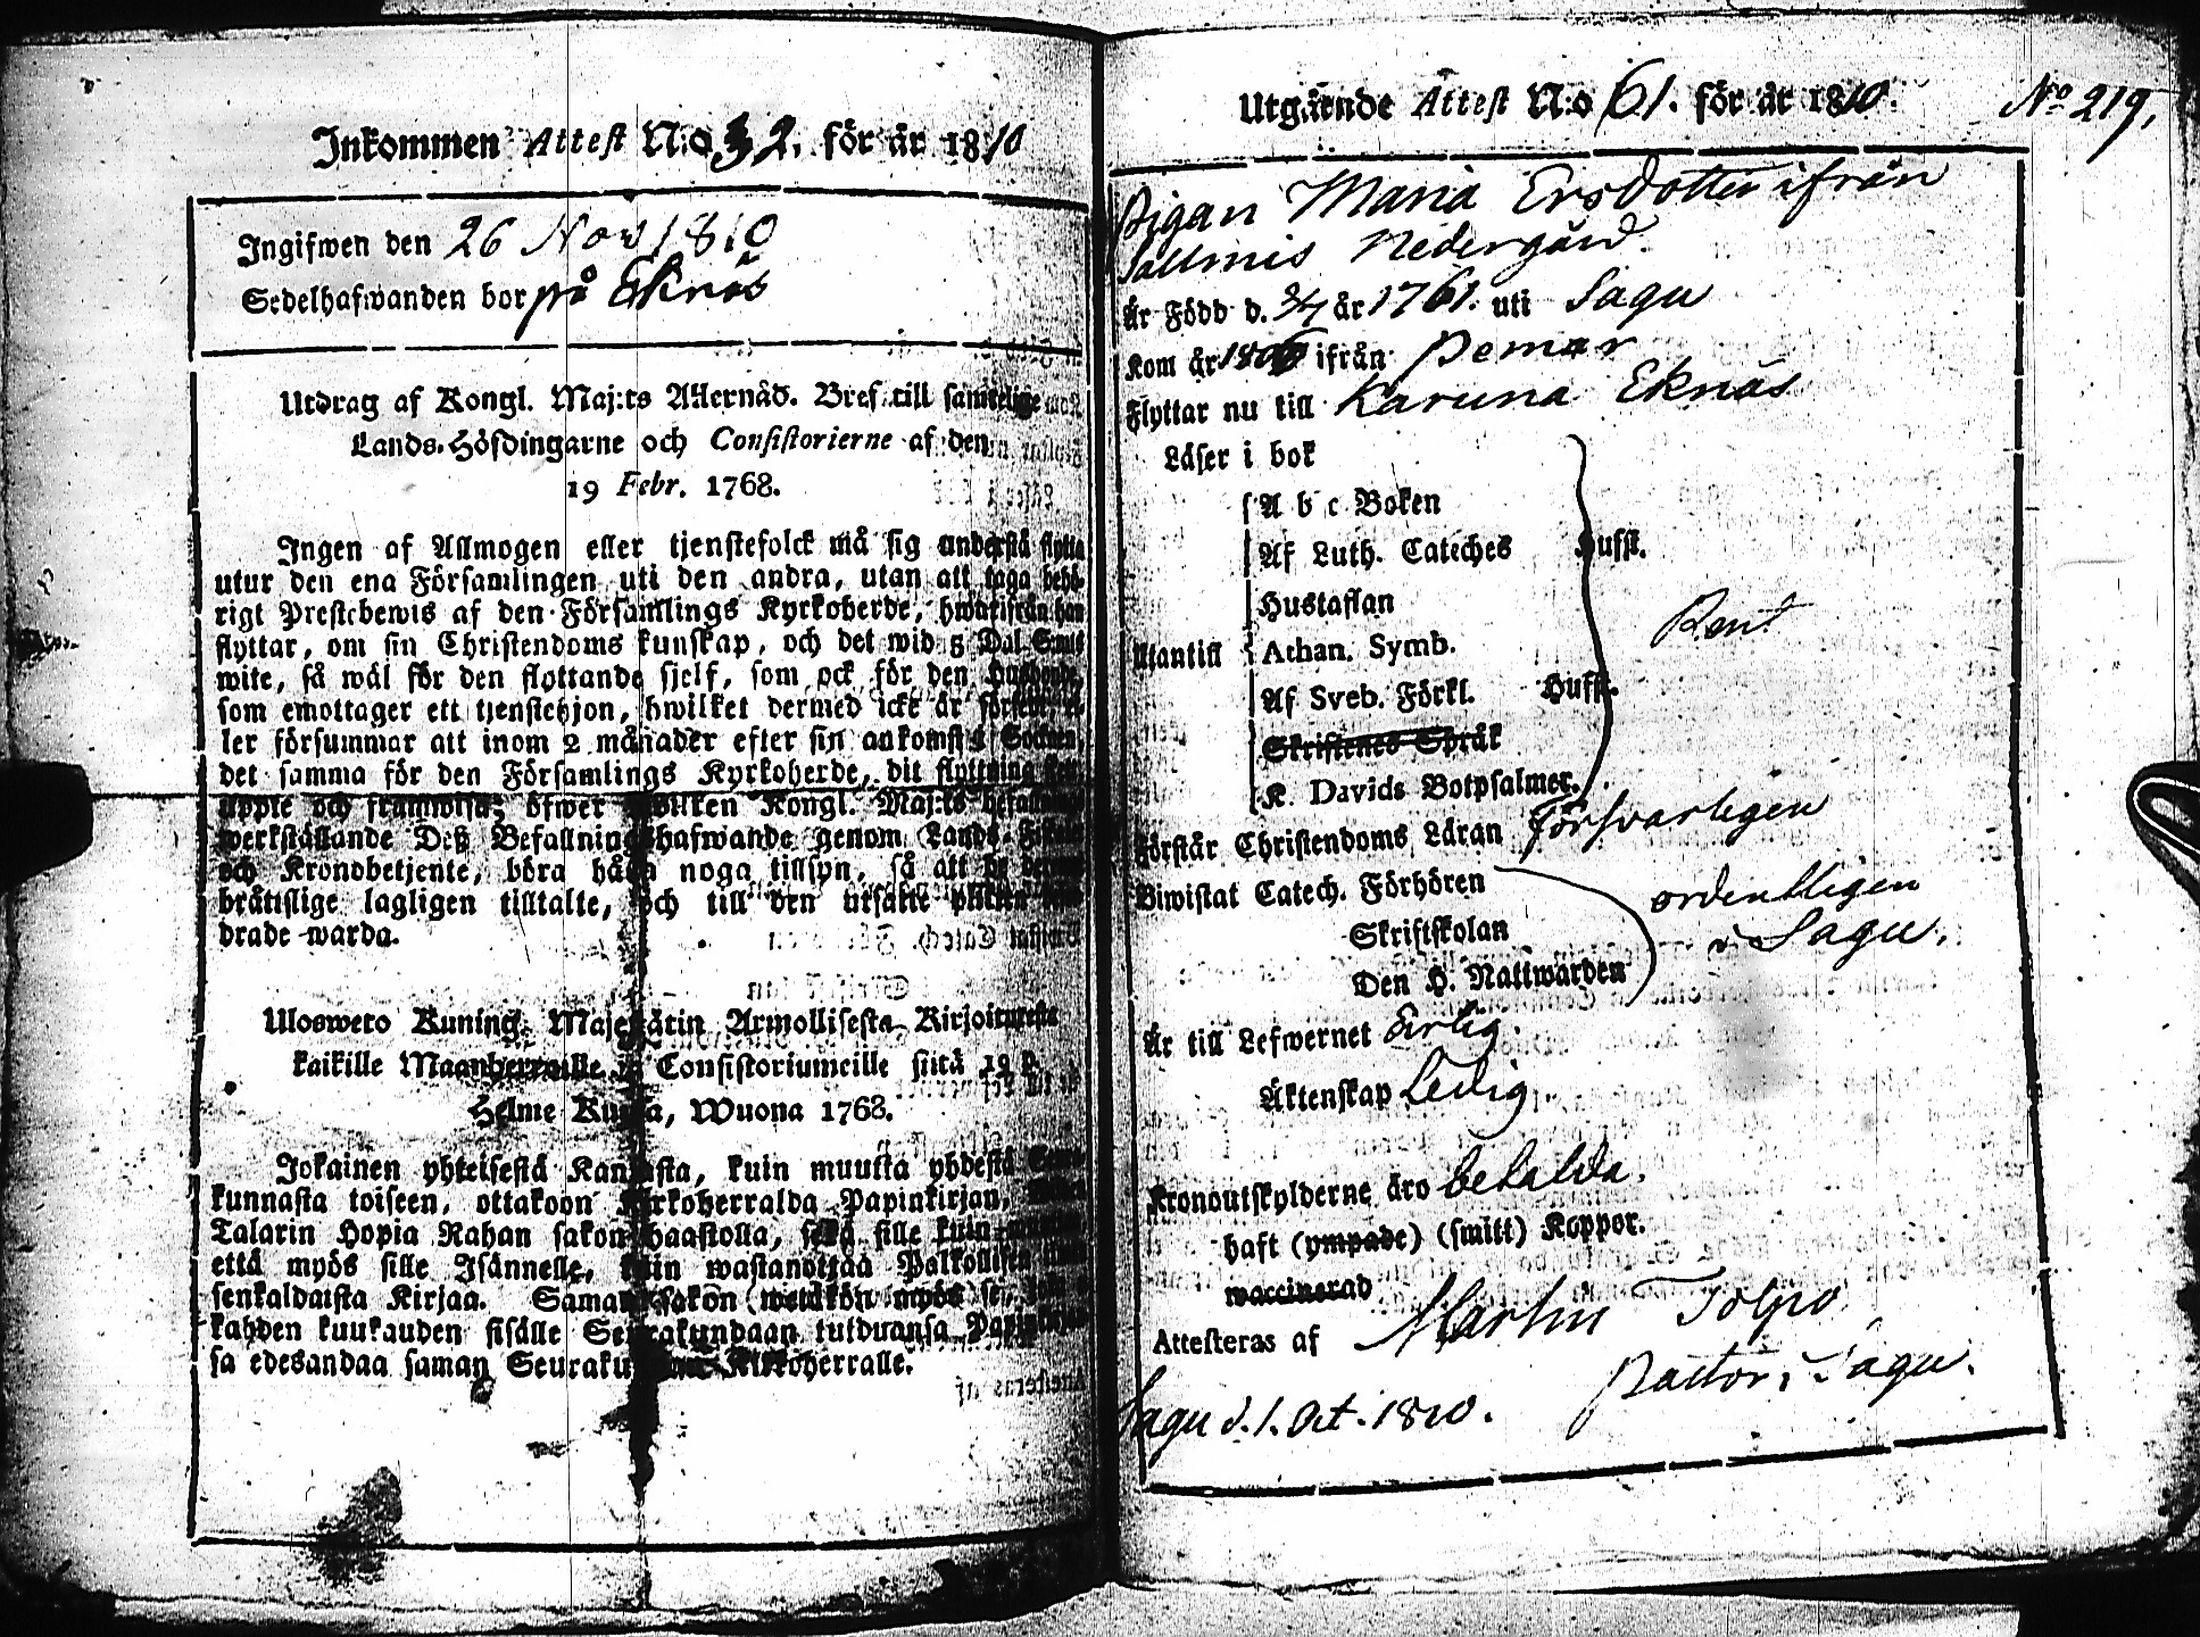 Inkommen Attest N:o 32. för år 1810
Ingifwen den 26 Nov 1810
Sedelhafwanden bor på Eknäs
Utdrag af Kongl. Maj:ts Allernåd. Bref till samtelige
Lands-Höfdingarne och Consistorierne af den
19 Febr. 1768.
Ingen af Allmogen eller tjenstefolck må sig understå flytta
utur den ena Församlingen uti den andra, utan att taga behö-
rigt Prestebewis af den Församlings Kyrkoherde, hwarifrån han
flyttar, om sin Christendoms kunskap, och det wid 5 Dal. S:mts
wite, så wäl för den flyttande sjelf, som ock för den Husbonde,
som emottager ett tjenstehjon, hwilket dermed icke är försedt, el-
ler försummar att inom 2 månader efter sin ankomst i Socknen,
det samma för den Församlings Kyrkoherde, dit flyttning sker,
uppte och framwisa; öfwer hwilken Kongl. Maj:ts befallnings
werkställande Deß Befallningshafwande genom Lands-Fiskaler
och Kronobetjente, böra hafwa noga tillsyn, så att de
bråttslige lagligen tilltalte, och till den utsatte plikten
drade warda.
Ulosweto Kuningl. Majestätin Armollisesta Kirjoituxesta
kaikille Maanherroille ja Consistoriumeille siitä 19 p.
Helme Kuusa, Wuona 1768.
Jokainen yhteisestä Kansasta, kuin muutta yhdestä Seura-
kunnasta toiseen, ottakoon Kirkoherralda Papinkirjan,
Talarin Hopia Rahan sakon haastolla, sekä sille kuin
että myös sille Isännelle, kuin wastanottaa Palkollisen
senkaldaista Kirjaa. Saman sakon wetäkön myös se,
kahden kuukauden sisälle Seurakundaan tulduansa Papinkirjan-
sa edesandaa saman Seurakunnan Kirkoherralle.
Utgående Attest N:o 61. för år 1810. No 219,
Pigan Maria Ersdotter ifrån
Sallmis Nedergård.
Är Född d. 3/7 år 1761. uti Sagu
Kom år 1806 ifrån Pemar
Flyttar nu till Karuna Eknäs
Läser i bok
A b c Boken
Af Luth. Cateches Hufft.
Hustaflan
Utantill Athan. Symb. Rent
Af Sveb. Förkl. Hufft.
Skriftenes Språk
K. Davids Botpsalmer.
Förstår Christendoms Läran försvarligen
Biwistat Catech. Förhören ordentligen
Skriftskolan i Sagu.
Den H. Nattwarden
Är till Lefwernet Ärlig.
Äktenskap Ledig
Kronoutskylderne äro betalda.
haft (ympade) (smitt) Koppor.
waccinerad
Attesteras af Martin Tolpo
Pastor i Sagu.
Sagu d. 1. Oct. 1810.